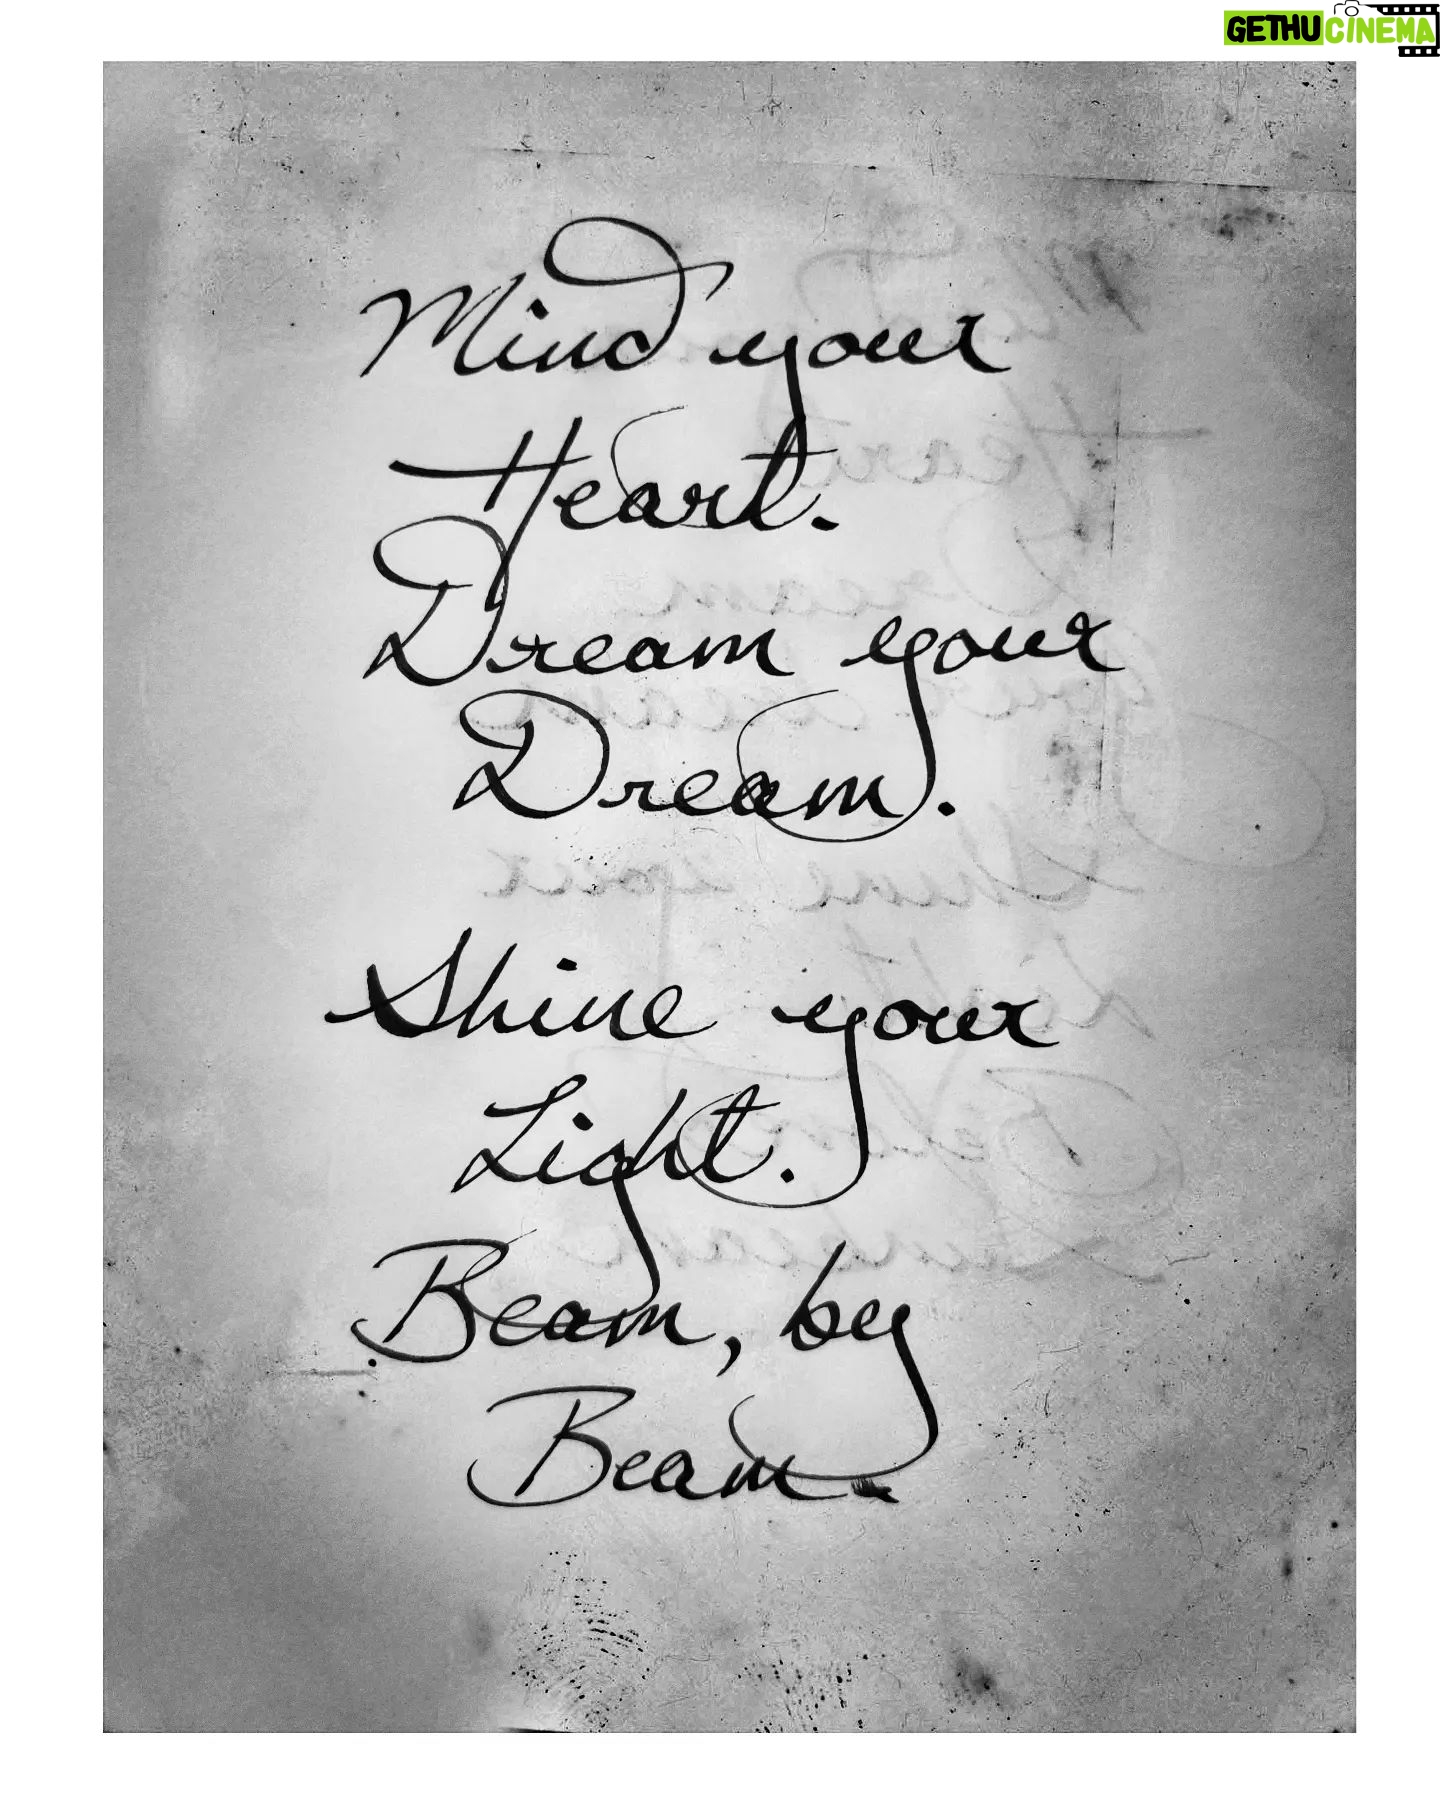 GETHU CINEMA
Mind your
Heart.
Dream your
Dream.
Shine your
Light.
Beam, by
Beam.